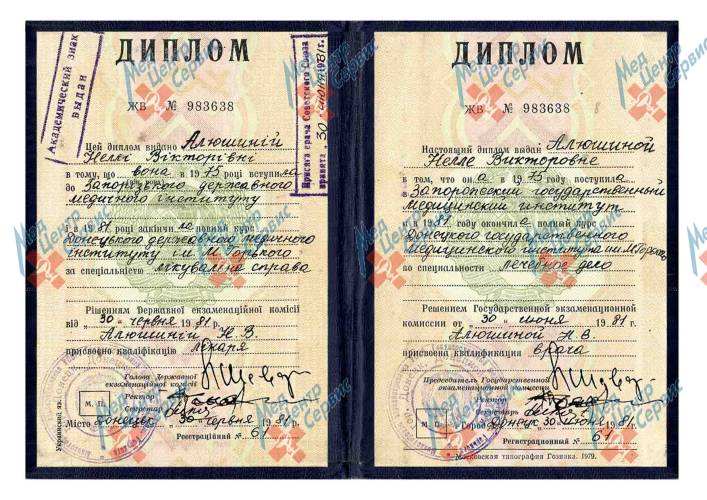 Академический знак
выдан
ДИПЛОМ
ЖВ № 983638
Присяга врача Советского Союза
принята „30" июня 1981г.
Цей диплом видано Алюшиній
Неллі Вікторівні
в тому, що вона в 1975 році вступила
до Запорізького державного
медичного інституту
і в 1981 році закінчила повний курс
Донецького державного медичного
інституту ім. М. Горького
за спеціальністю лікувальна справа
Рішенням Державної екзаменаційної комісії
від „30" червня 1981 р.
Алюшиній Н. В.
присвоєно кваліфікацію лікаря
Голова Державної
екзаменаційної комісії
Ректор
Секретар
М. П.
Місто Донецьк „30" червня 1981 р.
Реєстраційний № 61
Украинский яз.
ДИПЛОМ
ЖВ № 983638
Настоящий диплом выдан Алюшиной
Нелле Викторовне
в том, что она в 1975 году поступила
в Запорожский государственный
медицинский институт
и в 1981 году окончила полный курс
Донецкого государственного
медицинского института им. М. Горького
по специальности лечебное дело
Решением Государственной экзаменационной
комиссии от „30" июня 1981 г.
Алюшиной Н. В.
присвоена квалификация врача
Председатель Государственной
экзаменационной комиссии
Ректор
Секретарь
М. П.
Город Донецк 30 июня 1981 г.
Регистрационный № 61
Московская типография Гознака. 1979.
Мед Центр Сервис